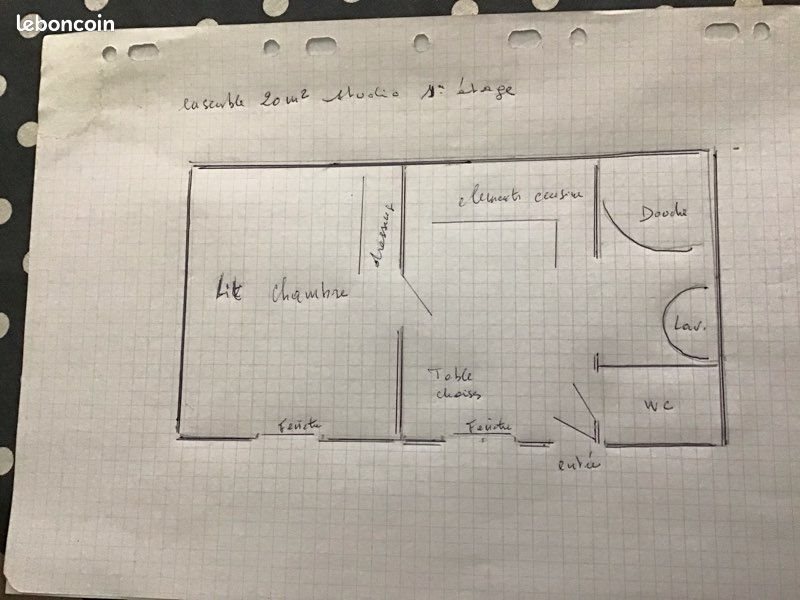 leboncoin
ensemble 20m² studio 1er étage
elements cuisine
Douche
dressing
Lit chambre
Lav.
Table
chaises
WC
Fenêtre
Fenêtre
entrée